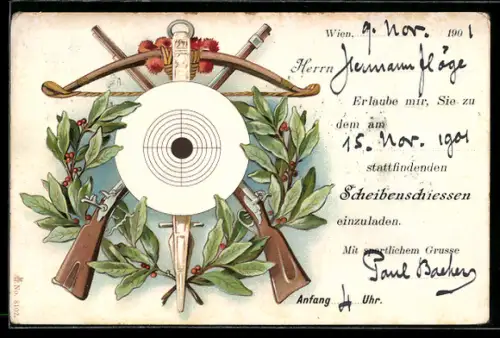 Wien, 9. Nov. 1901
Herrn Hermann Flöge
Erlaube mir, Sie zu
dem am
15. Nov. 1901
stattfindenden
Scheibenschiessen
einzuladen.
Mit sportlichem Grusse
Paul
Anfang 4 Uhr.
No. 8102.